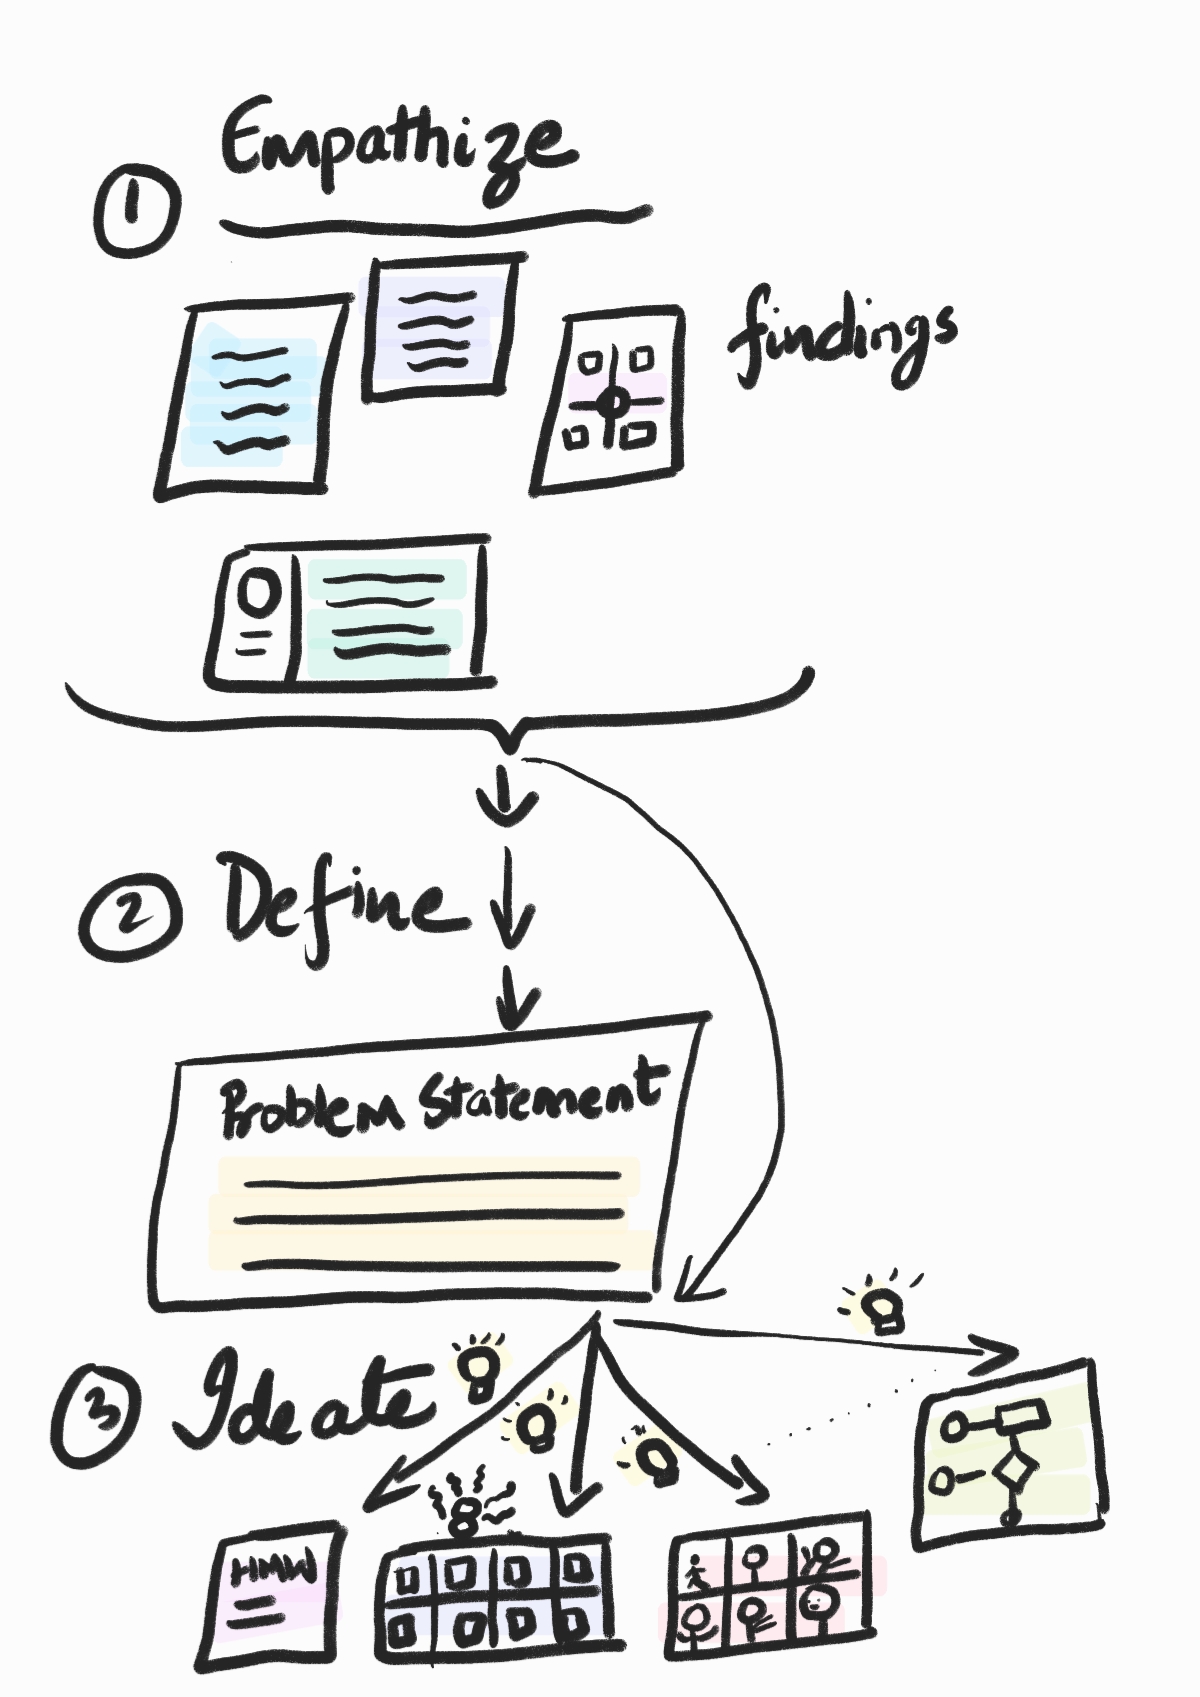 Empathize
1
findings
2 Define
Problem Statement
3 Ideate
HMW